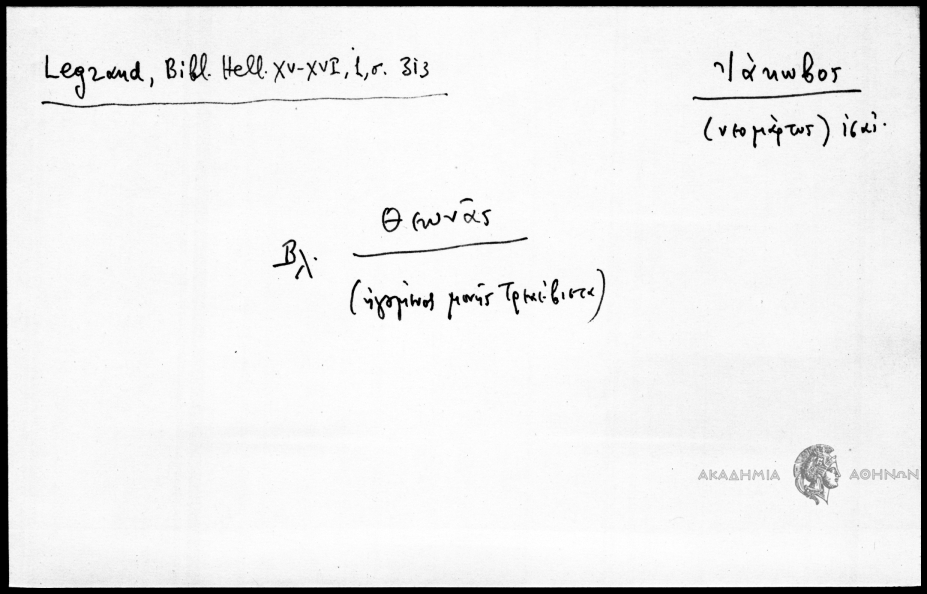 Legrand, Bibl. Hell. XV-XVI, 1, σ. 313
Ἰάκωβος
(νεομάρτυς)
Βλ. Θεωνᾶς
(ἡγούμενος μονῆς
ΑΚΑΔΗΜΙΑ ΑΘΗΝΩΝ